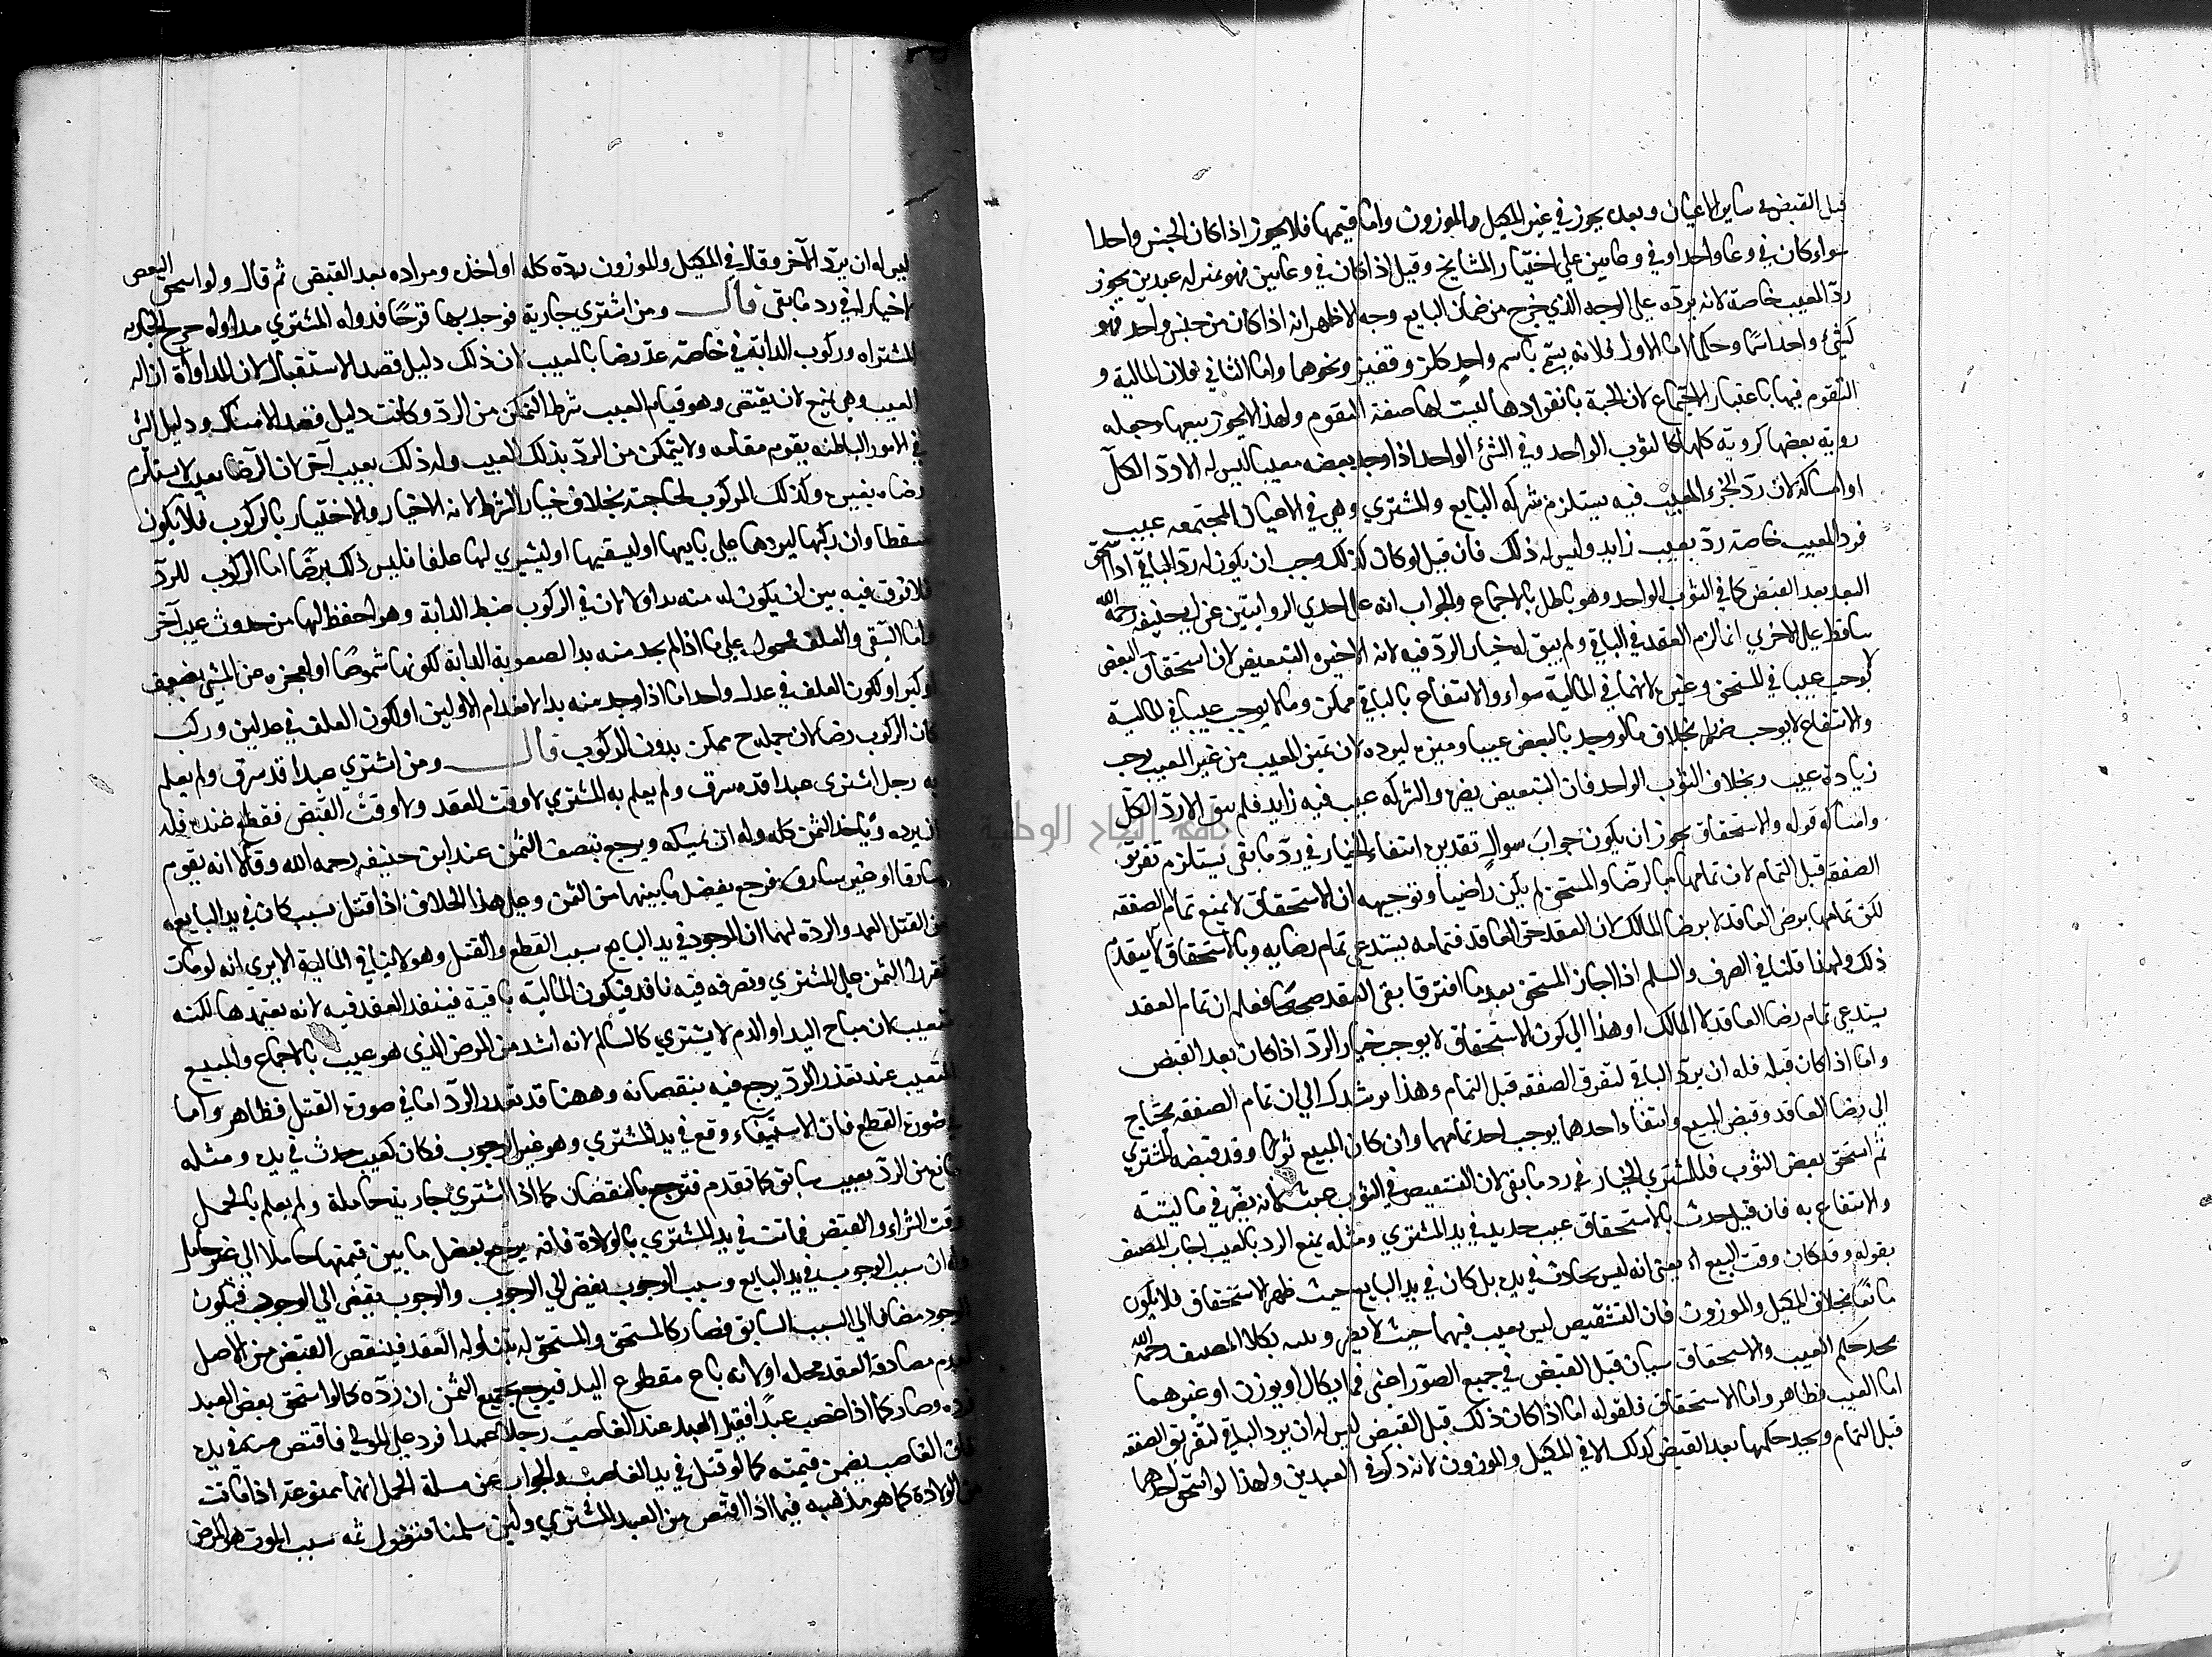 قبل القبض في ساير الاعيان وبعده يجوز في غير المكيل والموزون واما قيمها فلا يجوز اذا كان الجنس واحدا
سواء كان في وعاء واحد او في وعايين علي اختيار المشايخ وقيل اذا كان في وعايين فهو بمنزله عبدين يجوز
ردّ العيب خاصة لانه يردّه علي الوجه الذي خرج من ضمان البايع وجه الاظهر انه اذا كان من جنس واحد فهو
كشئ واحد اسمًا وحكمًا اما الاول فلانه يسمي باسم واحدٍ ككرّ وقفيز ونحوهما واما الثاني فلان المالية و
التقوم فيها باعتبار الاجتماع لان الحبة بانفرادها ليست لها صفة التقوم ولهذا لا يجوز بيعها وجعله
روية بعضها كروية كلها كالثوب الواحد وفي الشئ الواحد اذا وجد بعضه معيبا ليس له الا ردّ الكلّ
او امساكه لان ردّ الجزء المعيب فيه يستلزم شركه البايع والمشتري وهي في الاعيان المجتمعه عيب
فرد المعيب خاصة ردّ بعيب زايد وليس له ذلك فان قيل لو كان كذلك وجب ان يكون له ردّ الباقي اذا استحق
البعد بعد القبض كما في الثوب الواحد وهو باطل بالاجماع والجواب انه علي احدي الروايتين عن ابي حنيفه رحمه الله
ساقط علي الاخري انما لزم العقد في الباقي ولم يبق له خيار الردّ فيه لانه لا خيره التبعيض لان استحقاق البعض
لا يوجب عيبا في المستحق وغيره لانهما في المالية سواء والانتفاع بالباقي ممكن وما لا يوجب عيبا في المالية
والانتفاع لا يوجب ضررا بخلاف ما لو وجد بالبعض عيبا وميزه ليرده لان تميز المعيب من غير المعيب يوجب
زيادة عيب وبخلاف الثوب الواحد فان التبعيض يضره والشركه عيب فيه زايد فلم يبق الا ردّ الكلّ
وامساكه قوله والاستحقاق يجوز ان يكون جوابَ سوالٍ تقديره انتفاء الخيار في ردّ ما بقي يستلزم تفريق
الصفقه قبل التمام لان تمامها بالرضا والمستحق لم يكن راضيا وتوجيهه ان الاستحقاق لا يمنع تمام الصفقه
لكن تمامها برضي العاقد لا برضا المالك لان العقد حق العاقد فتمامه يستدعي تمام رضايه وبالاستحقاق لا ينعدم
ذلك ولهذا قلنا في الصرف والسلم اذا اجاز المستحق بعد ما افترقا بقي العقد صحيحًا فعلم ان تمام العقد
يستدعي تمام رضا العاقد لا المالك او هذا الي كون الاستحقاق لا يوجب خيار الردّ اذا كان بعد القبض
واما اذا كان قبله فله ان يردّ الباقي لتفرق الصفقه قبل التمام وهذا يرشدك الي ان تمام الصفقه يحتاج
الي رضا العاقد وقبض المبيع وانتفاء احدهما يوجب احد تمامهما وان كان المبيع ثوبًا وقد قبضه المشتري
ثم استحق بعض الثوب فللمشتري الخيار في رد ما بقي لان التبعيض في الثوب عيب لانه يضرّ في ماليته
والانتفاع به فان قيل حدث بالاستحقاق عيب جديد في يد المشتري ومثله يمنع الرد بالعيب اجاب المصنف
بقوله وقد كان وقت البيع اه يعني انه ليس بحادث في يده بل كان في يد البايع حيث ظهر الاستحقاق فلا يكون
مانعًا بخلاف المكيل والموزون فان التشقيص ليس بعيب فيهما حيث لا يضر وبكلام المصنف رحمه الله
يحد حكم العيب والاستحقاق سيان قبل القبض في جميع الصور اعني فما يكال او يوزن او غيرهما
اما العيب فظاهر واما الاستحقاق فلقوله اما اذا كان ذلك قبل القبض ليس له ان يرد الباقي لتفريق الصفقه
قبل التمام ويحد حكمها بعد القبض كذلك الا في المكيل والموزون لانه ذكر في العبدين ولهذا لو استحق احدهما
ليس له ان يردّ الاخر وقال في المكيل والموزون يردّه كله او اخذه ومراده بعد القبض ثم قال ولو استحق البعض
لا خيار له في رد ما بقي قال ومن اشتري جارية فوجد بها قرحًا فدواه المشتري مداواه جرح الجاريه
المشتراه وركوب الدابة في خاصته عدّ رضا بالعيب لان ذلك دليل قصد الاستقبال لان المداواة ازاله
العيب وهي تمنع لان يقتضي وهو قيام العيب شرط التمكن من الردّ وكانت دليل قصد الامساك ودليل الشئ
في الامور الباطنه يقوم مقامه ولا يتمكن من الردّ بذلك العيب وله ذلك بعيب آخر لان الرضا بعيب لا يستلزم
رضاه بغيره وكذلك الركوب لحاجته بخلاف خيار الشرط لانه الاختيار والاختيار بالركوب فلا يكون
مسقطا وان ركبها ليردها علي بايعها او ليسقيها او ليشتري لها علفا فليس ذلك برضًا اما الركوب للردّ
فلا فرق فيه بين ان يكون له منه بدا ولا لان في الركوب ضبط الدابة وهو احفظ لها من حدوث عيب آخر
واما السقي والعلف محمول علي ما اذا لم يجد منه بدا لصعوبة الدابة لكونها شموصًا او لعجزه عن المشي بضعف
او كبر او لكون العلف في عدل واحد اما اذا وجد منه بدا لانعدام الاولين او لكون العلف في عدلين وركب
كان الركوب رضا لان حمله ح ممكن بدون الركوب قال ومن اشتري عبدا قد سرق ولم يعلم
به رجل اشتري عبدا قد سرق ولم يعلم به المشتري لا وقت العقد ولا وقت القبض فقطع عنده فله
ان يرده وياخذ الثمن كله وله ان يمسكه ويرجع بنصف الثمن عند ابي حنيفه رحمه الله وقالا انه يقوم
سارقا او غير سارق فرجع بفضل ما بينهما من الثمن وعلي هذا الخلاف اذا قتل بسبب كان في يد البايع
من القتل العمد والردة لهما ان الموجود في يد البايع سبب القطع والقتل وهو لا ينافي المالية الا يري انه لو مات
تقرر الثمن علي المشتري وتصرفه فيه نافذ فيكون المالية باقية فينفذ العقد فيه لانه يعتمدها لكنه
متعيب لان مباح اليد او الدم لا يشتري كالسالم لانه اشد من المرض الذي هو عيب بالاجماع والمبيع
المتعيب عند تعذر الردّ يرجع فيه بنقصانه وههنا قد تعذر الردّ اما في صورة القتل فظاهر واما
في صورة القطع فان الاستيفاء وقع في يد المشتري وهو غير الوجوب فكان كعيب حدث في يده ومثله
مانع من الردّ بعيب سابق كما تقدم فترجع بالنقصان كما اذا اشتري جارية حاملة ولم يعلم بالحمل
وقت الشراء والقبض فماتت في يد المشتري بالولادة فانه يرجع بفضل ما بين قيمتها حاملا الي غير حامل
وله ان سبب الوجوب في يد البايع وسبب الوجوب يفضي الي الوجوب والوجوب يفضي الي الوجود فيكون
الوجود مضافا الي السبب السابق فصار كالمستحق والمستحق لم يتناوله العقد فينتقض القبض من الاصل
لعدم مصادفة العقد محله او لانه باع مقطوع اليد فيرجع بجميع الثمن ان ردّه كما لو استحق بعض العبد
ردّه وصار كما اذا غصب عبدًا فقتل العبد عند الغاصب رجلا عمدا فرد علي المولي فاقتص منه في يده
فان الغاصب يضمن قيمته كما لو قتل في يد الغاصب والجواب عن مسلة الحمل انها ممنوعة اذا ماتت
من الولادة كما هو مذهبه فيما اذا اقتص من العبد المشتري ولين سلمنا فنقول ثمه سبب الموت هو المرض
جامعة النجاح الوطنية